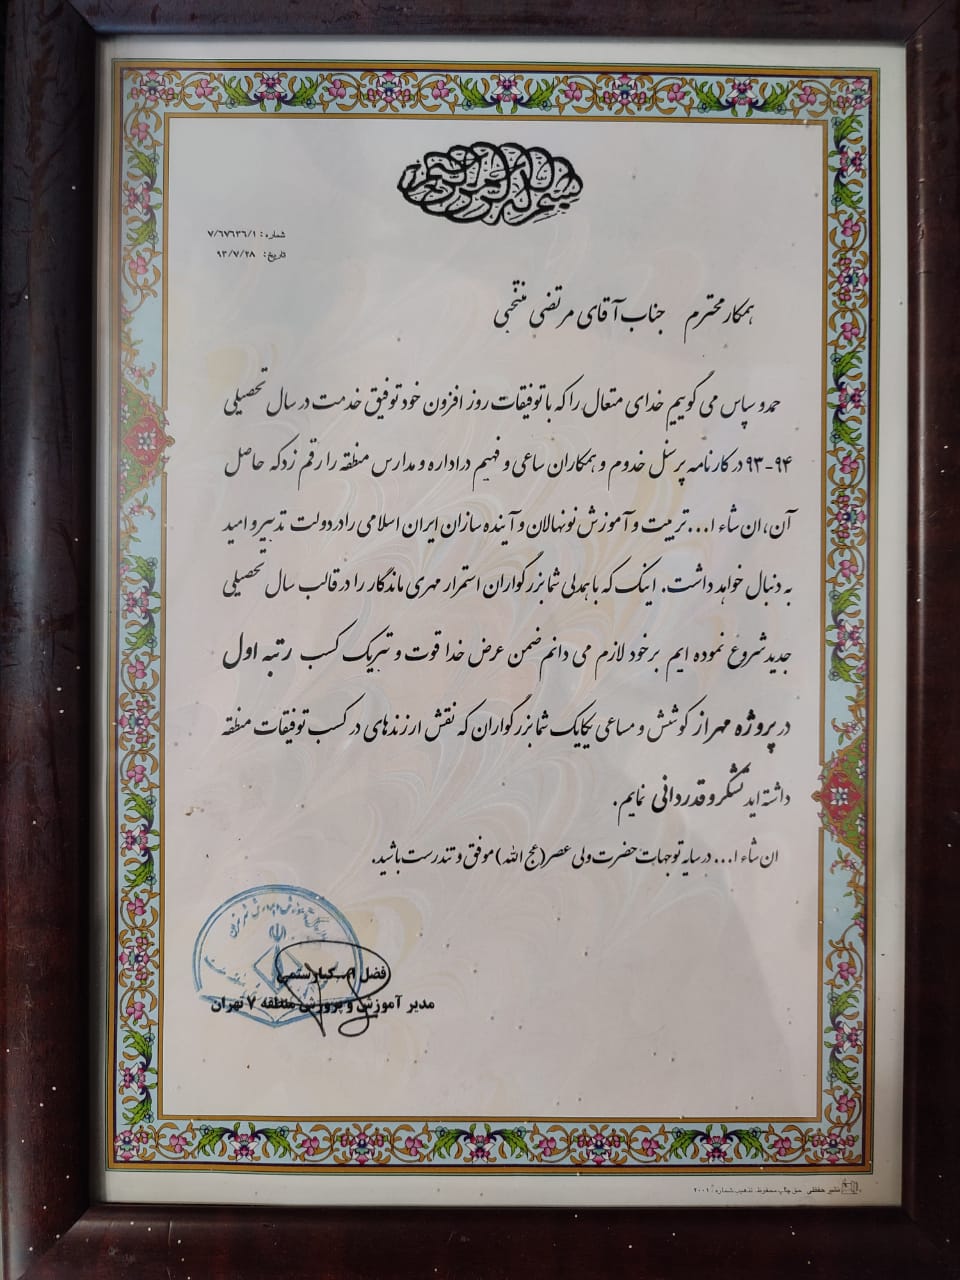 بسم الله الرحمن الرحیم
شماره: ۷/۶۷۶۳۶/۱
تاریخ: ۹۳/۷/۲۸
همکار محترم جناب آقای مرتضی منتخبی
حمد و سپاس می گوییم خدای متعال را که با توفیقات روز افزون خود توفیق خدمت در سال تحصیلی
۹۳-۹۴ در کارنامه پرسنل خدوم و همکاران ساعی و فهیم در اداره و مدارس منطقه را رقم زد که حاصل
آن، ان شاء ا... تربیت و آموزش نونهالان و آینده سازان ایران اسلامی را در دولت تدبیر و امید
به دنبال خواهد داشت. اینک که با همدلی شما بزرگواران استمرار مهری ماندگار را در قالب سال تحصیلی
جدید شروع نموده ایم بر خود لازم می دانم ضمن عرض خدا قوت و تبریک کسب رتبه اول
در پروژه مهر از کوشش و مساعی یکایک شما بزرگواران که نقش ارزنده‌ای در کسب توفیقات منطقه
داشته اید تشکر و قدردانی نمایم.
ان شاء ا... در سایه توجهات حضرت ولی عصر (عج الله) موفق و تندرست باشید.
فضل ا... کیارستمی
مدیر آموزش و پرورش منطقه ۷ تهران
نشر حفظی حق چاپ محفوظ. تذهیب شماره: ۲۰۰۱